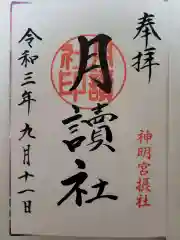 奉拝
神明宮摂社
月讀社
令和三年九月十一日